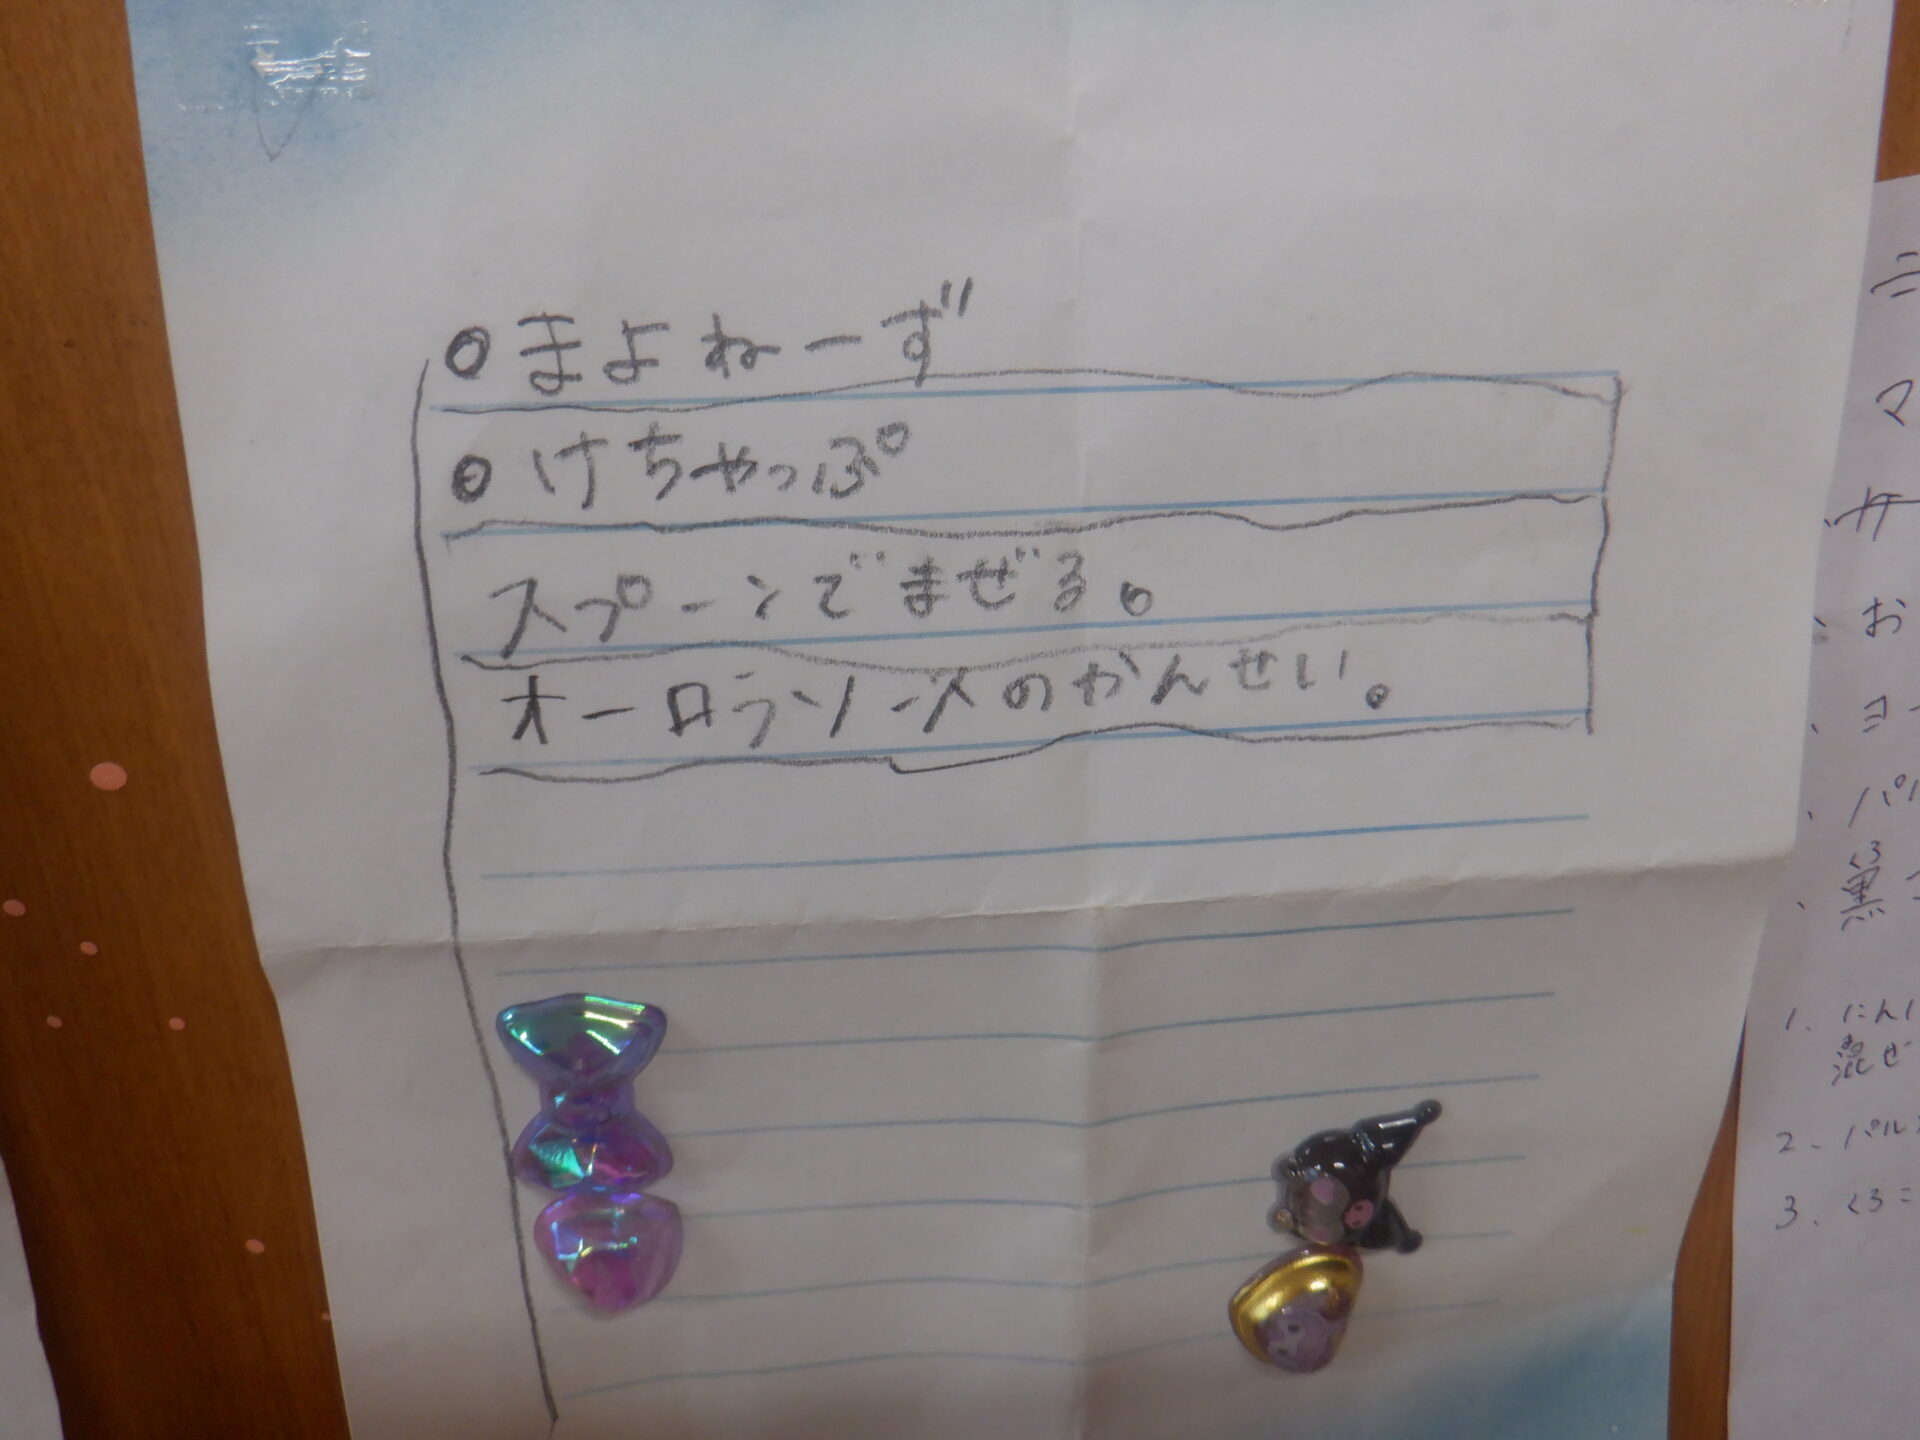 ○まよねーず
○けちゃっぷ
スプーンでまぜる。
オーロラソースのかんせい。
マ
、サ
お
、ヨー
、パル
くろ
、黒
1、にんに
混ぜ
2、パル
3、くろこ